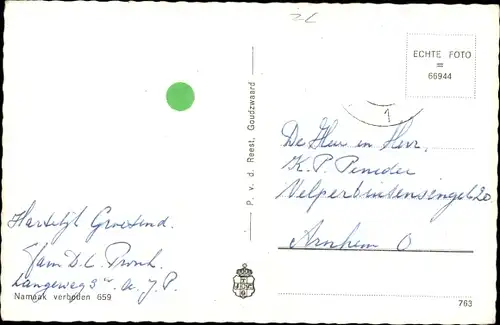 ZL
ECHTE FOTO
=
66944
1
P. v. d. Reest, Goudzwaard
De Heer en Mevr.
K. P. Peneder
Velperbuitensingel 20
Arnhem O
Hartelijk Groetend.
Fam. D. C. Pronk.
Langeweg
Namaak verboden 659
763